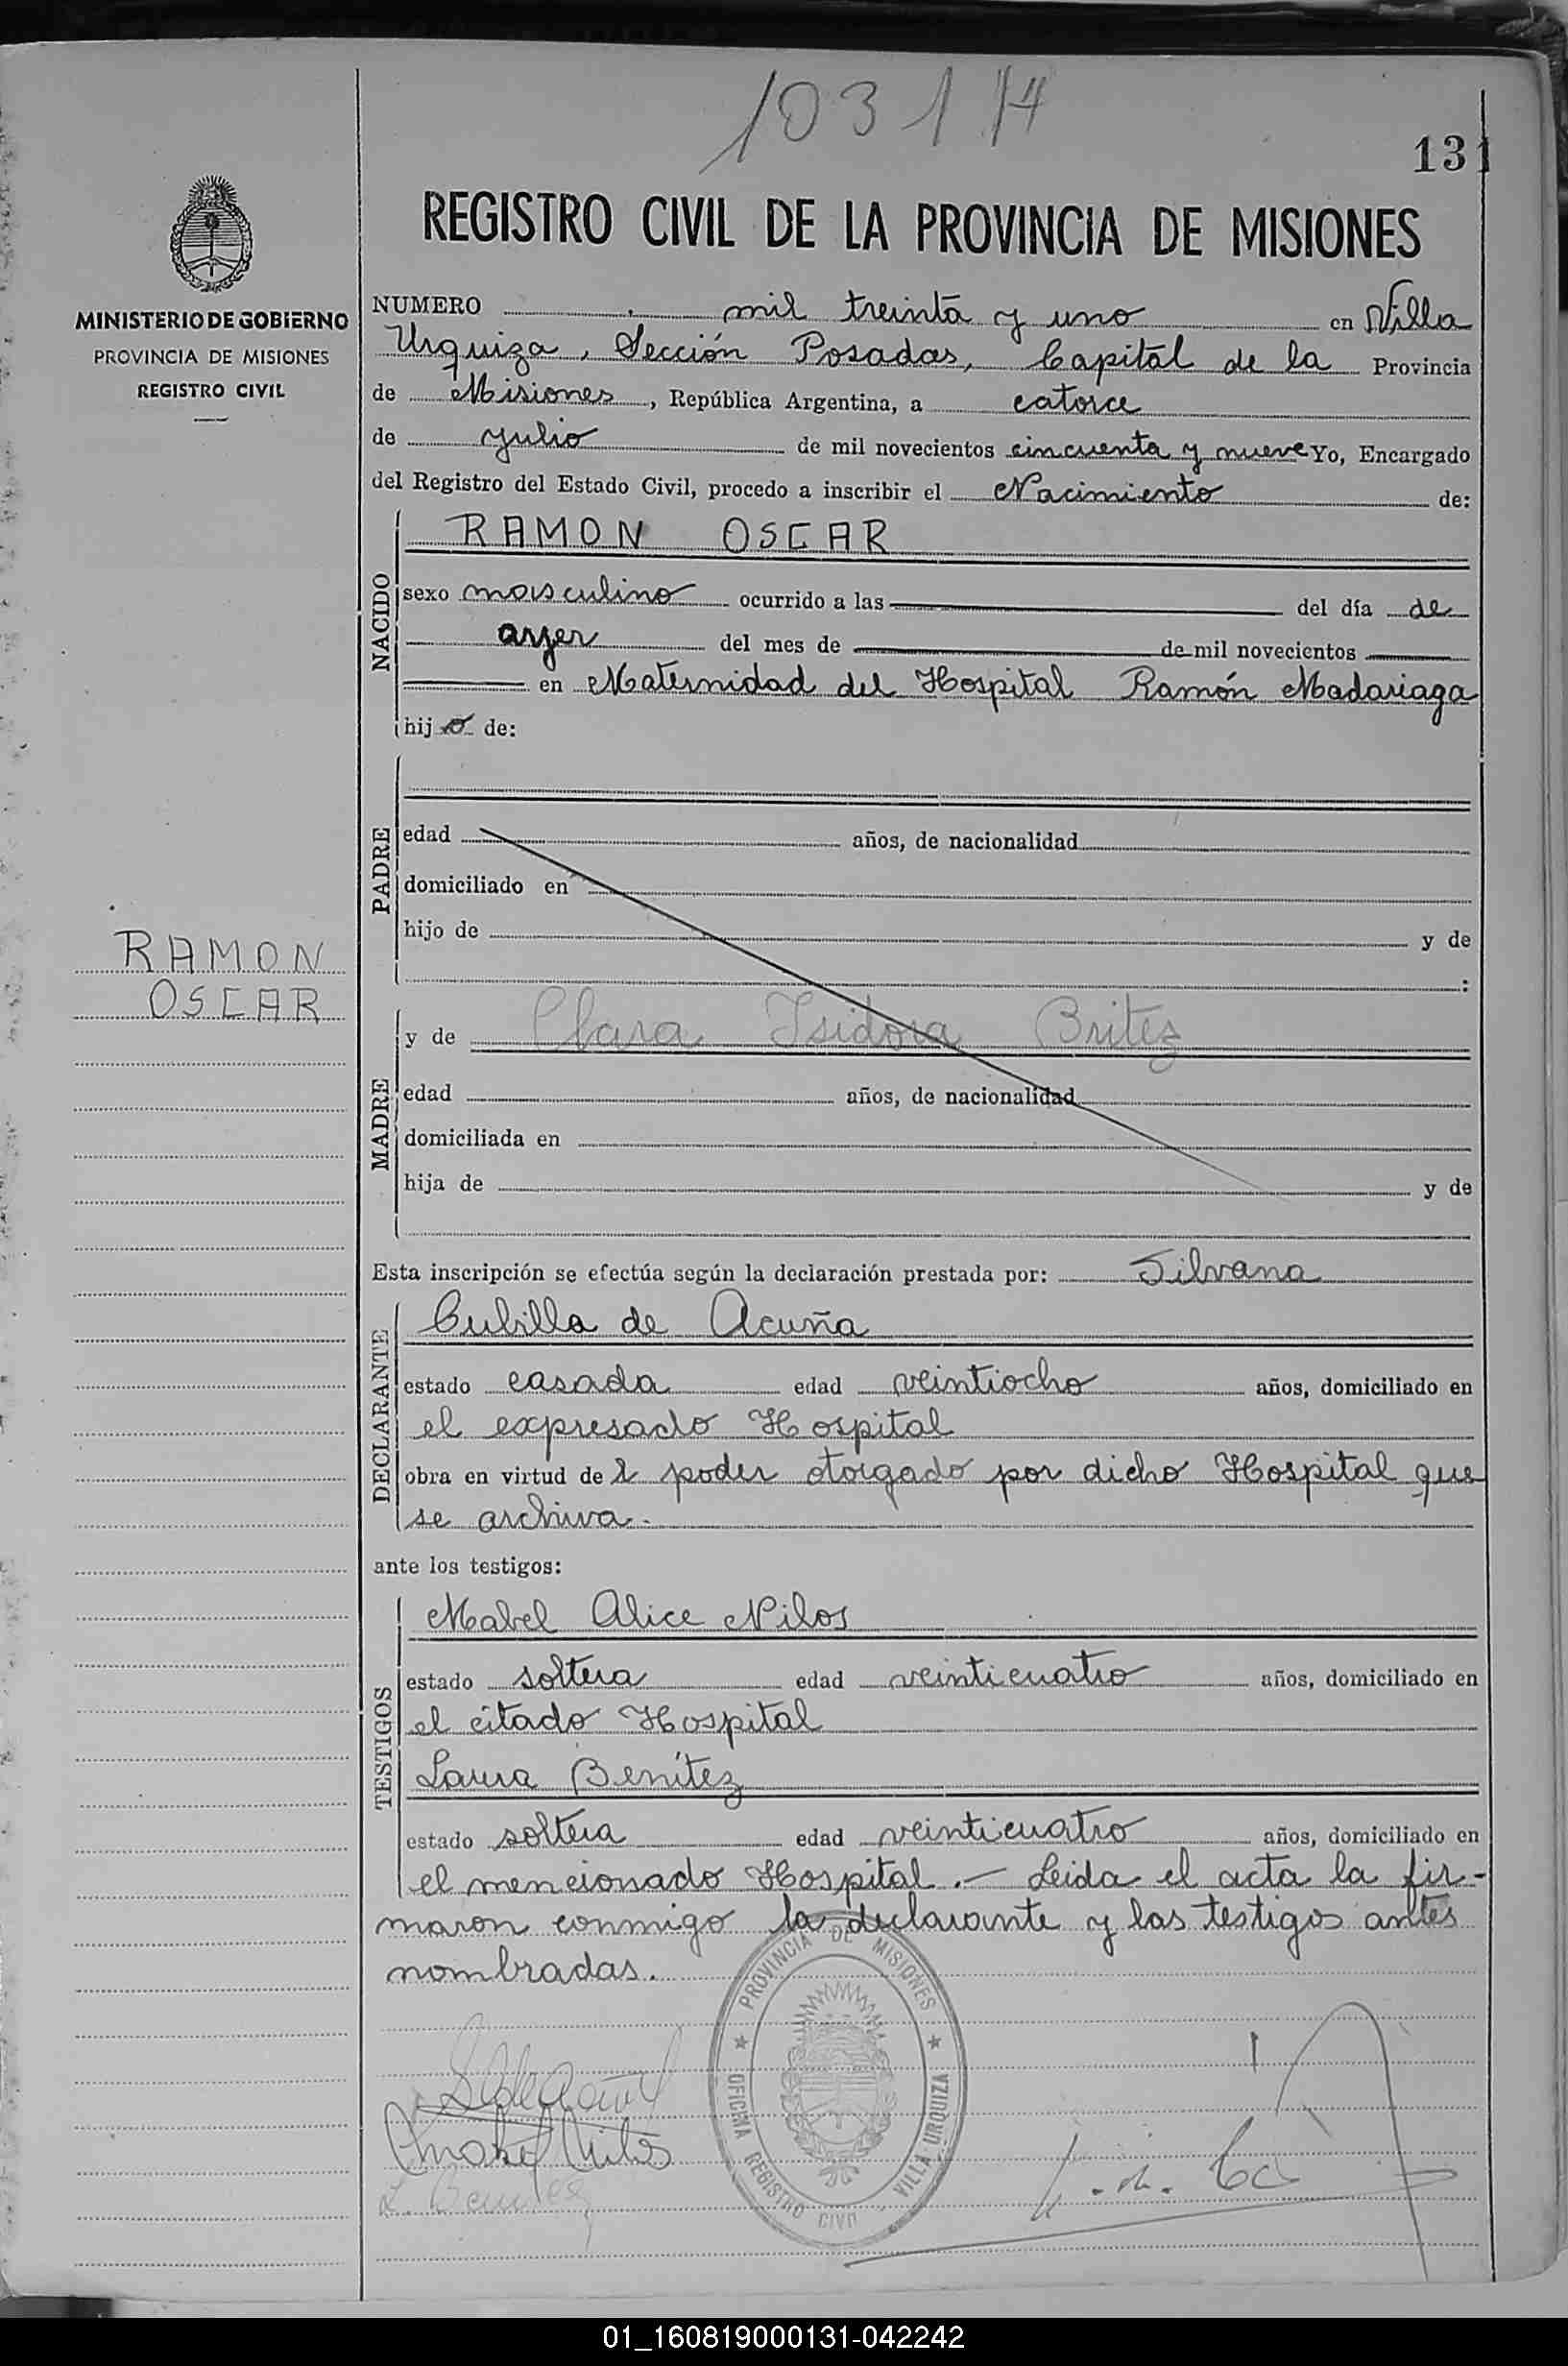 1031 H
131
MINISTERIO DE GOBIERNO
PROVINCIA DE MISIONES
REGISTRO CIVIL
REGISTRO CIVIL DE LA PROVINCIA DE MISIONES
NUMERO mil treinta y uno en Villa
Urquiza, Sección Posadas, Capital de la Provincia
de Misiones, República Argentina, a catorce
de julio de mil novecientos cincuenta y nueve Yo, Encargado
del Registro del Estado Civil, procedo a inscribir el Nacimiento de:
NACIDO
RAMON OSCAR
sexo masculino ocurrido a las del día de
ayer del mes de de mil novecientos
en Maternidad del Hospital Ramón Madariaga
hijo de:
PADRE
edad años, de nacionalidad
domiciliado en
hijo de y de
:
RAMON
OSCAR
MADRE
y de Clara Isidora Britez
edad años, de nacionalidad
domiciliada en
hija de y de
Esta inscripción se efectúa según la declaración prestada por: Silvana
DECLARANTE
Cubilla de Acuña
estado casada edad veintiocho años, domiciliado en
el expresado Hospital
obra en virtud del poder otorgado por dicho Hospital que
se archiva.
ante los testigos:
TESTIGOS
Mabel Alice Nilos
estado soltera edad veinticuatro años, domiciliado en
el citado Hospital
Laura Benítez
estado soltera edad veinticuatro años, domiciliado en
el mencionado Hospital.- Leida el acta la fir-
maron conmigo la declarante y las testigos antes
nombradas.
PROVINCIA DE MISIONES
OFICINA REGISTRO CIVIL VILLA URQUIZA
L. Benitez
01_160819000131-042242